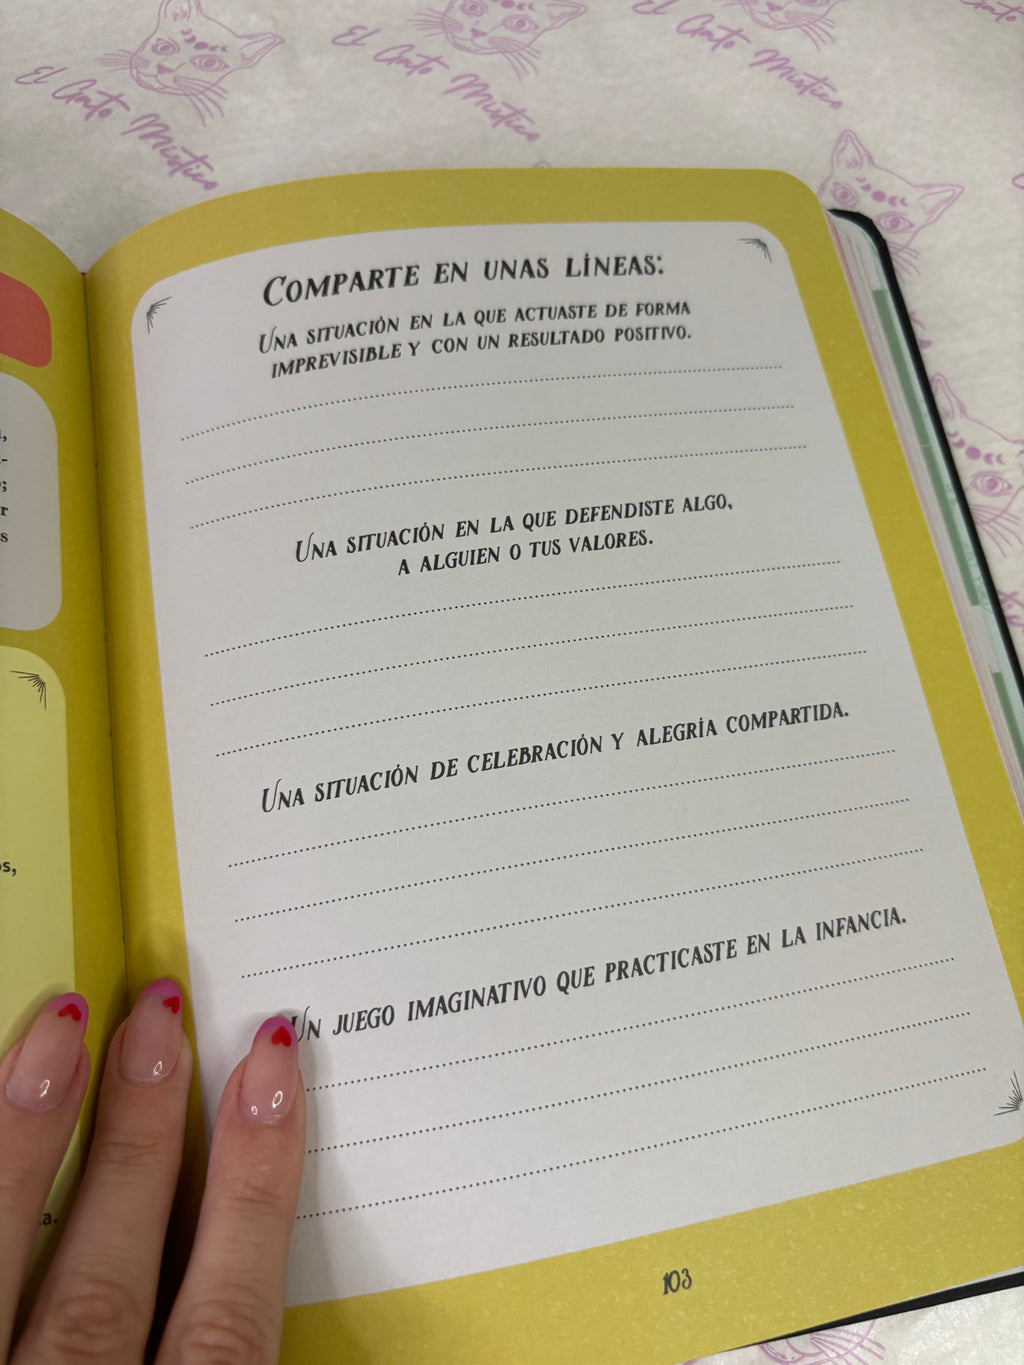 El Gato Místico
El Gato Místico
El Gato Místico
COMPARTE EN UNAS LÍNEAS:
UNA SITUACIÓN EN LA QUE ACTUASTE DE FORMA
IMPREVISIBLE Y CON UN RESULTADO POSITIVO.
UNA SITUACIÓN EN LA QUE DEFENDISTE ALGO,
A ALGUIEN O TUS VALORES.
UNA SITUACIÓN DE CELEBRACIÓN Y ALEGRÍA COMPARTIDA.
UN JUEGO IMAGINATIVO QUE PRACTICASTE EN LA INFANCIA.
103